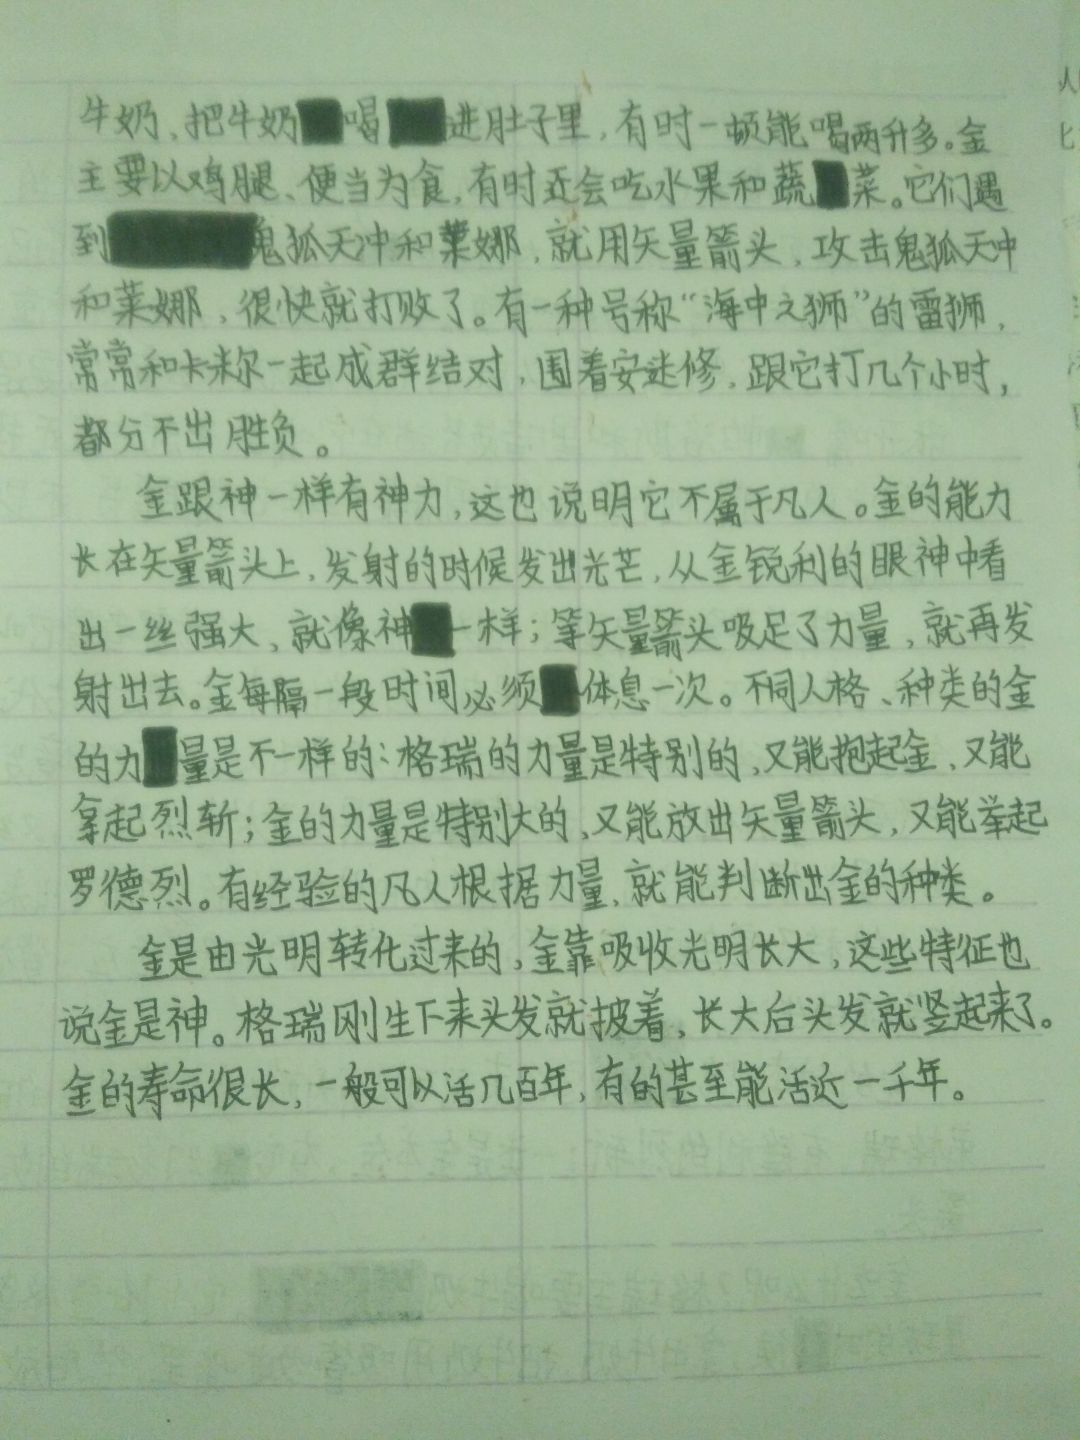 牛奶、把牛奶喝进肚子里，有时一顿能喝两升多。金
主要以鸡腿、便当为食，有时还会吃水果和蔬菜。它们遇
到鬼狐天冲和莱娜，就用矢量箭头，攻击鬼狐天冲
和莱娜，很快就打败了。有一种号称“海中之狮”的雷狮，
常常和卡米尔一起成群结对，围着安迷修，跟它打几个小时，
都分不出胜负。
金跟神一样有神力，这也说明它不属于凡人。金的能力
长在矢量箭头上，发射的时候发出光芒，从金锐利的眼神中看
出一丝强大，就像神一样；等矢量箭头吸足了力量，就再发
射出去。金每隔一段时间必须体息一次。不同人格、种类的金
的力量是不一样的：格瑞的力量是特别的，又能抱起金，又能
拿起烈斩；金的力量是特别大的，又能放出矢量箭头，又能举起
罗德烈。有经验的凡人根据力量，就能判断出金的种类。
金是由光明转化过来的，金靠吸收光明长大，这些特征也
说金是神。格瑞刚生下来头发就披着，长大后头发就竖起来了。
金的寿命很长，一般可以活几百年，有的甚至能活近一千年。